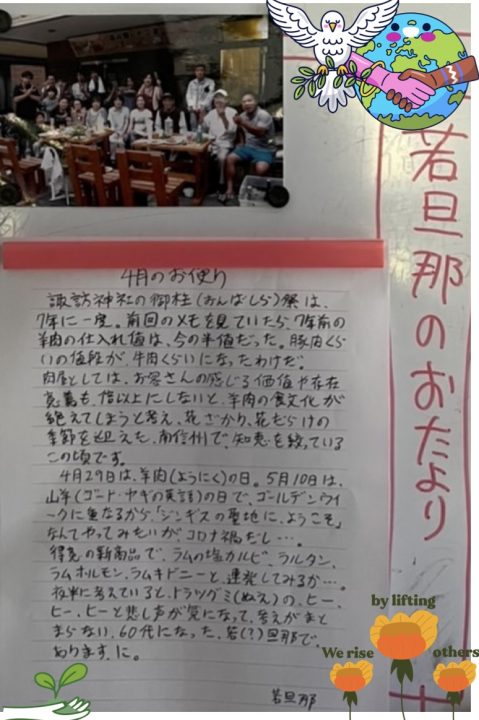 若旦那のおたより
4月のお便り
諏訪神社の御柱(おんばしら)祭は、
7年に一度。前回のメモを見ていたら、7年前の
羊肉の仕入れ値は、今の半値だった。豚肉くら
いの値段が、牛肉くらいになったわけだ。
肉屋としては、お客さんの感じる価値や存在
意義も、倍以上にしないと、羊肉の食文化が
絶えてしまうと考え、花ざかり、花だらけの
季節を迎えた、南信州で、知恵を絞っている
この頃です。
4月29日は、羊肉(ようにく)の日。5月10日は、
山羊(ゴート・ヤギの英語)の日で、ゴールデンウイ
ークに重なるから、「ジンギスの聖地に、ようこそ」
なんてやってみたいがコロナ禍だし…。
得意の新商品で、ラムの塩カルビ、ラルタン、
ラムホルモン、ラムキドニーと、連発してみるか…。
夜半に考えていると、トラツグミ(ぬえ)の、ヒー、
ヒー、ヒーと悲し声が気になって、考えがまと
まらない、60代になった、若(?)旦那で、
あります、に。
若旦那
by lifting
We rise
others